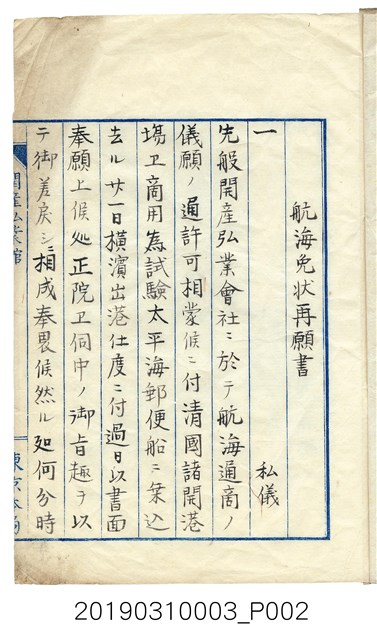 航海免狀再願書
一 私儀
先般開産弘業會社ニ於テ航海通商ノ
儀願ノ通許可相蒙候ニ付清國諸開港
塲ヱ商用為試驗太平海郵便船ニ乗込
去ル廿一日横濱出港仕度ニ付過日以書面
奉願上候処正院ヱ伺中ノ御旨趣ヲ以
テ御差戻シニ相成奉畏候然ル処如何分時
開産弘業館
東京本局
20190310003_P002